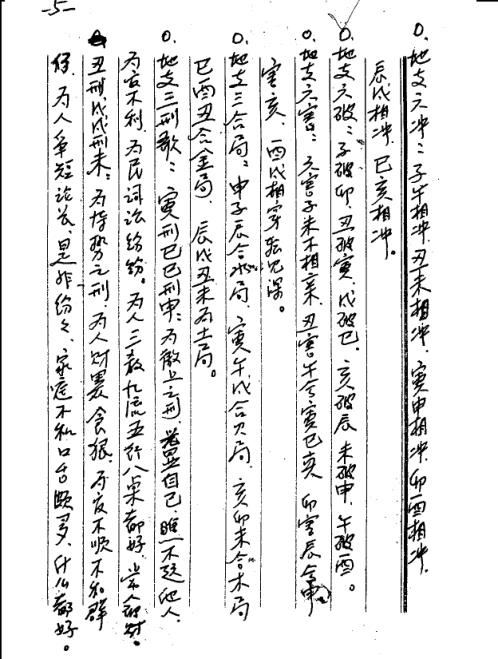 -5-
0.地支六冲：子午相冲.丑未相冲.寅申相冲.卯酉相冲.
辰戌相冲.巳亥相冲。
0.地支六破：子破卯.丑破寅.戌破巳.亥破辰.未破申.午破酉。
0.地支六害：六害子未不相亲.丑害午兮寅巳亥.卯害辰兮申
害亥.酉戌相穿
0.地支三合局：申子辰合水局.寅午戌合火局.亥卯未合木局
巳酉丑合金局.辰戌丑未为土局。
0.地支三刑歌：寅刑巳巳刑申：为徵上之刑.自己.瞧不起他人.
为官不利.为民词讼纷纷。为人三教九流五行八桌都好.
丑刑戌戌刑未：为恃势之刑.为人财累贪狠.为官不顺不和群
为人争短论长.是非纷々.家庭不和口舌颇多.什么都好。